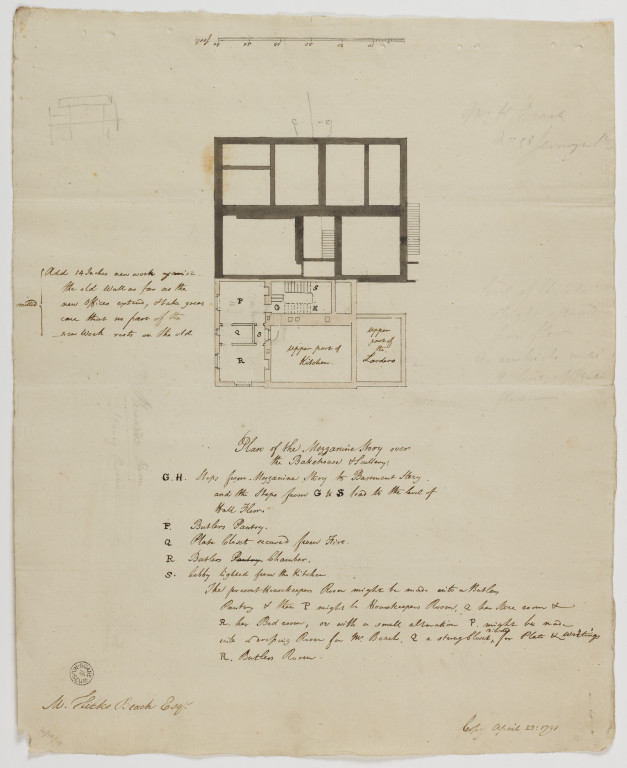 Add 14 Inches new work against
the old Wall as far as the
new Offices extend, & take great
care that no part of the
new Work rests on the old
P
Q
R
S
G
S
H
upper part of
Kitchen
upper
part of
the
Larders
Plan of the Mezzanine Story over
the Bakehouse & Scullery
G.H. Steps from Mezzanine Story to Basement Story.
and the Steps from G to S lead to the level of
Hall Floor.
P. Butlers Pantry.
Q Plate Closet secured from Fire.
R Butlers Pantry Chamber.
S. Lobby lighted from the Kitchen
The present Housekeepers Room might be made into a Butlers
Pantry & then P might be Housekeepers Room, Q her Store room &
R her Bed room, or with a small alteration P. might be made
into a Dressing Room for Mr Beach, Q a strong Closet for Plate & Writings
R. Butlers Room.
M. Hicks Beach Esqr.
Copy April 23: 1791